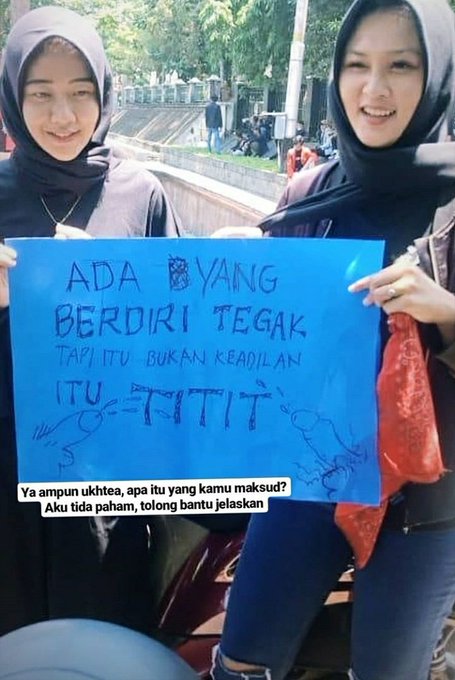 ADA YANG
BERDIRI TEGAK
TAPI ITU BUKAN KEADILAN
ITU TITIT
Ya ampun ukhtea, apa itu yang kamu maksud?
Aku tida paham, tolong bantu jelaskan